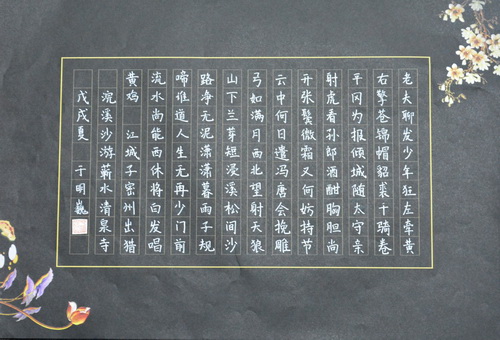 老夫聊发少年狂左牵黄
右擎苍锦帽貂裘千骑卷
平冈为报倾城随太守亲
射虎看孙郎酒酣胸胆尚
开张鬓微霜又何妨持节
云中何日遣冯唐会挽雕
弓如满月西北望射天狼
山下兰芽短浸溪松间沙
路净无泥潇潇暮雨子规
啼谁道人生无再少门前
流水尚能西休将白发唱
黄鸡 江城子密州出猎
浣溪沙游蕲水清泉寺
戊戌夏 于明巍